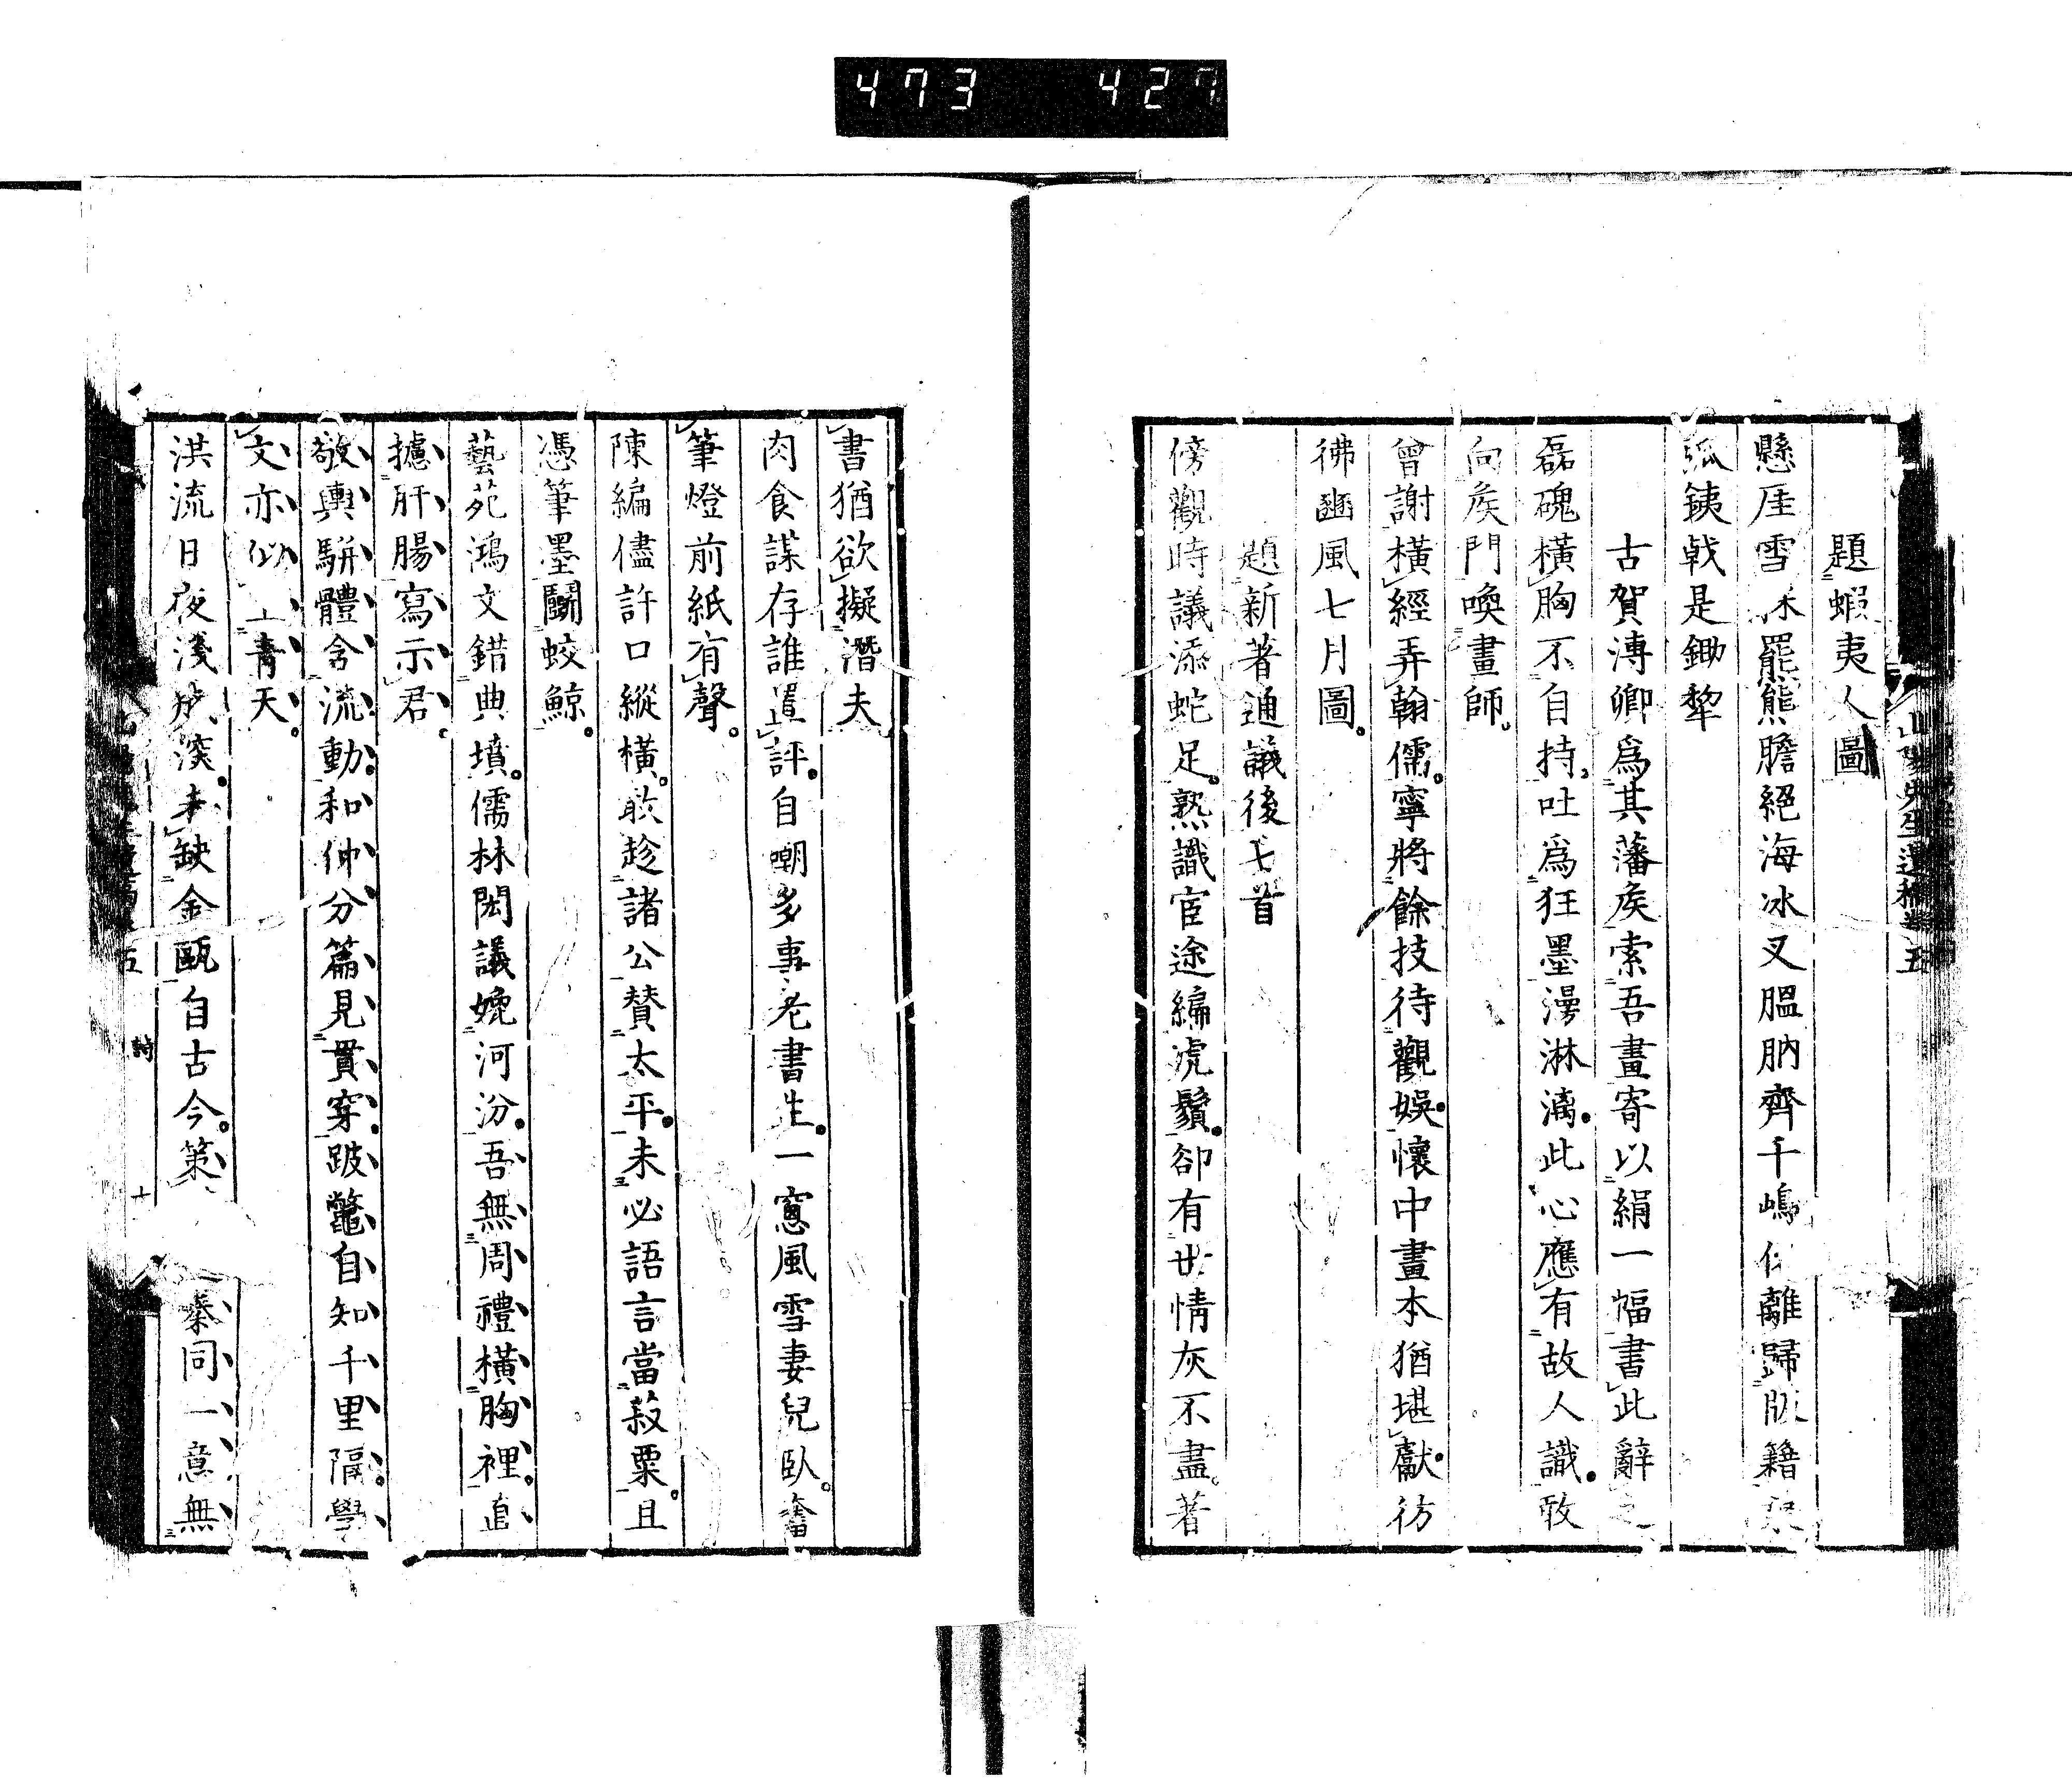 473 427
題蝦夷人圖
懸厓雪羆熊膽絕海冰叉膃肭臍千嶋離歸版籍
弧銕戟是鋤犂
古賀溥卿爲其藩矦索吾畫寄以絹一幅書此辭之
磊磈橫胸不自持吐爲狂墨漫淋漓此心應有故人識敢
向矦門喚畫師
曾謝橫經弄翰儒寧將餘技待觀娛懷中畫本猶堪獻彷
彿豳風七月圖
題新著通議後七首
傍觀時議添蛇足熟識宦途編虎鬚卻有世情灰不盡著
山陽先生遺稿卷五
書猶欲擬潛夫
肉食謀存誰置評自嘲多事老書生一窻風雪妻兒臥奮
筆燈前紙有聲
陳編儘許口縱橫敢趁諸公贊太平未必語言當菽粟且
憑筆墨鬪蛟鯨
藝苑鴻文錯典墳儒林閎議媲河汾吾無周禮橫胸裡直
攄肝腸寫示君
敬輿駢體含流動和仲分篇見貫穿跛鼈自知千里隔學
文亦似上青天
洪流日夜淺成深未缺金甌自古今策秦同一意無
五 詩 十